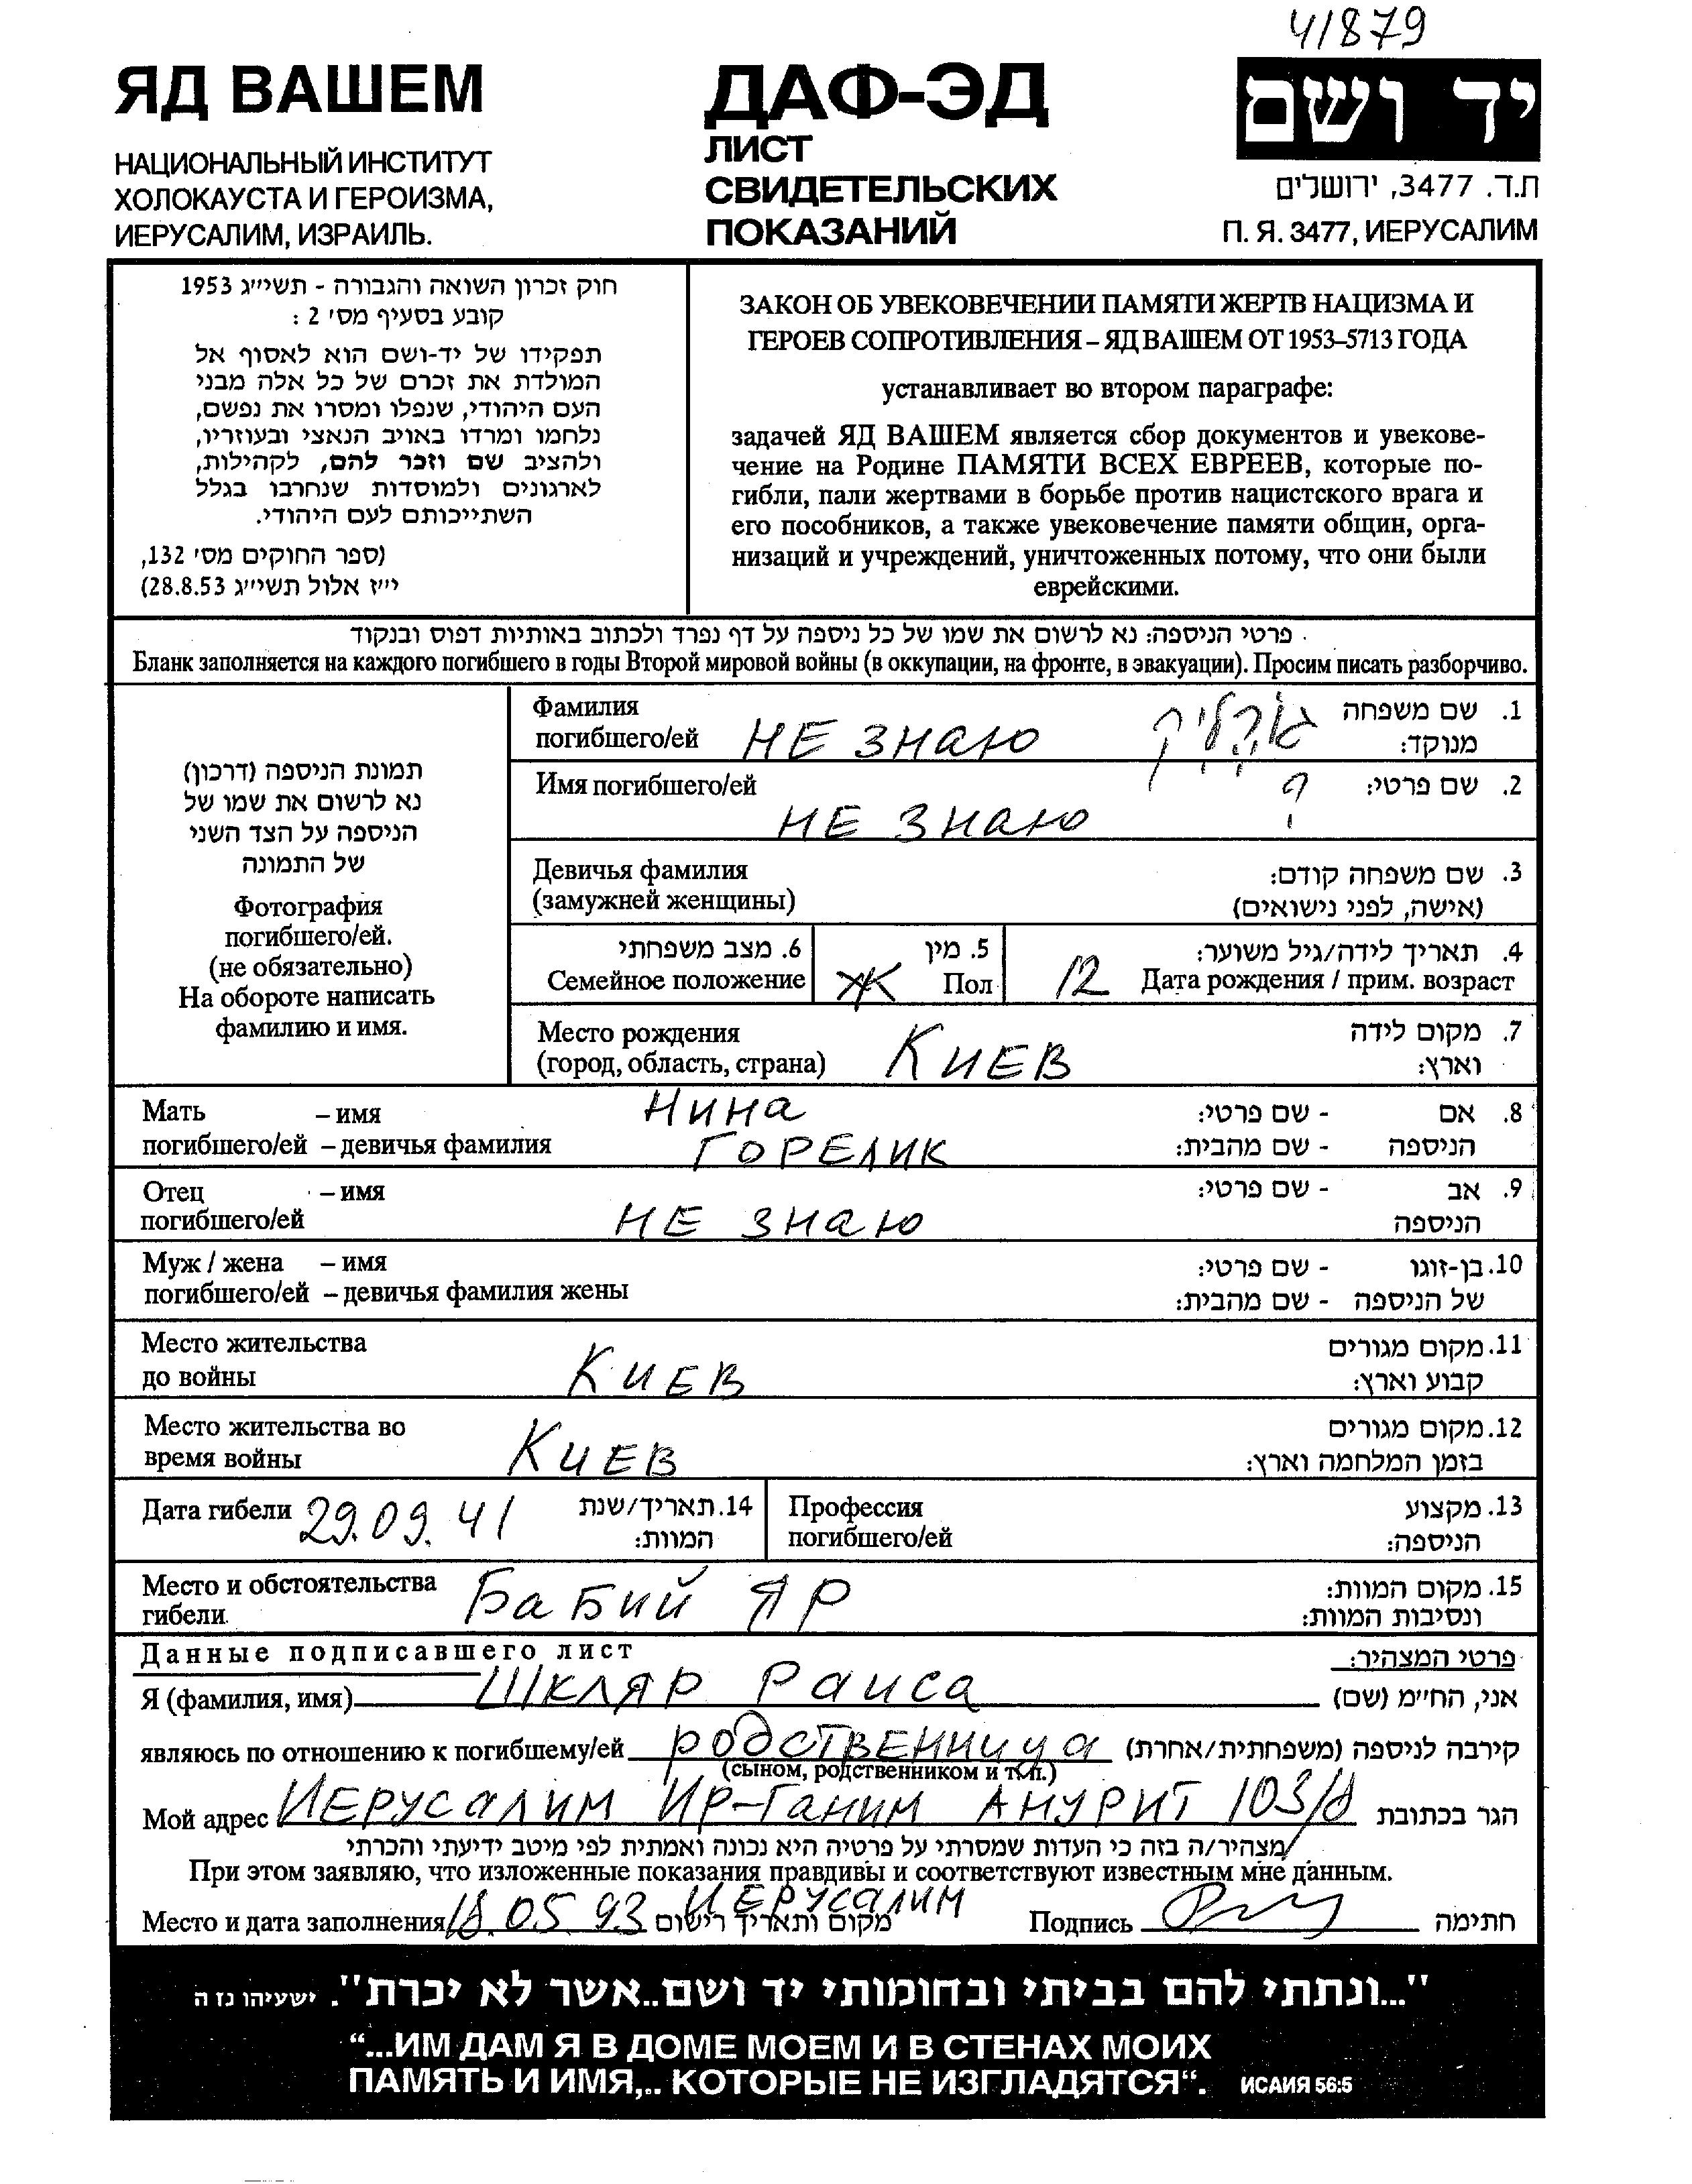 41879
ЯД ВАШЕМ
НАЦИОНАЛЬНЫЙ ИНСТИТУТ
ХОЛОКАУСТА И ГЕРОИЗМА,
ИЕРУСАЛИМ, ИЗРАИЛЬ.
ДАФ-ЭД
ЛИСТ
СВИДЕТЕЛЬСКИХ
ПОКАЗАНИЙ
יד ושם
ת.ד. 3477, ירושלים
П. Я. 3477, ИЕРУСАЛИМ
חוק זכרון השואה והגבורה - תשי״ג 1953
קובע בסעיף מס׳ 2 :
תפקידו של יד-ושם הוא לאסוף אל
המולדת את זכרם של כל אלה מבני
העם היהודי, שנפלו ומסרו את נפשם,
נלחמו ומרדו באויב הנאצי ובעוזריו,
ולהציב שם וזכר להם, לקהילות,
לארגונים ולמוסדות שנחרבו בגלל
השתייכותם לעם היהודי.
(ספר החוקים מס׳ 132,
י״ז אלול תשי״ג 28.8.53)
ЗАКОН ОБ УВЕКОВЕЧЕНИИ ПАМЯТИ ЖЕРТВ НАЦИЗМА И
ГЕРОЕВ СОПРОТИВЛЕНИЯ – ЯД ВАШЕМ ОТ 1953–5713 ГОДА
устанавливает во втором параграфе:
задачей ЯД ВАШЕМ является сбор документов и увекове-
чение на Родине ПАМЯТИ ВСЕХ ЕВРЕЕВ, которые по-
гибли, пали жертвами в борьбе против нацистского врага и
его пособников, а также увековечение памяти общин, орга-
низаций и учреждений, уничтоженных потому, что они были
еврейскими.
פרטי הניספה: נא לרשום את שמו של כל ניספה על דף נפרד ולכתוב באותיות דפוס ובנקוד.
Бланк заполняется на каждого погибшего в годы Второй мировой войны (в оккупации, на фронте, в эвакуации). Просим писать разборчиво.
תמונת הניספה (דרכון)
נא לרשום את שמו של
הניספה על הצד השני
של התמונה
Фотография
погибшего/ей.
(не обязательно)
На обороте написать
фамилию и имя.
Фамилия גורליק 1. שם משפחה
погибшего/ей НЕ ЗНАЮ מנוקד:
Имя погибшего/ей ? 2. שם פרטי:
НЕ ЗНАЮ
Девичья фамилия 3. שם משפחה קודם:
(замужней женщины) (אישה, לפני נישואים)
6. מצב משפחתי 5. מין 4. תאריך לידה/גיל משוער:
Семейное положение Ж Пол 12 Дата рождения / прим. возраст
Место рождения 7. מקום לידה
(город, область, страна) КИЕВ וארץ:
Мать – имя НИНА 8. אם - שם פרטי:
погибшего/ей – девичья фамилия ГОРЕЛИК הניספה - שם מהבית:
Отец – имя 9. אב - שם פרטי:
погибшего/ей НЕ ЗНАЮ הניספה
Муж / жена – имя 10. בן-זוגו - שם פרטי:
погибшего/ей – девичья фамилия жены של הניספה - שם מהבית:
Место жительства 11. מקום מגורים
до войны КИЕВ קבוע וארץ:
Место жительства во 12. מקום מגורים
время войны КИЕВ בזמן המלחמה וארץ:
Дата гибели 29.09.41 14. תאריך/שנת Профессия 13. מקצוע
המוות: погибшего/ей הניספה:
Место и обстоятельства БАБИЙ ЯР 15. מקום המוות:
гибели ונסיבות המוות:
Данные подписавшего лист פרטי המצהיר:
Я (фамилия, имя) ШКЛЯР РАИСА אני, החי״מ (שם)
являюсь по отношению к погибшему/ей РОДСТВЕННИЦА קירבה לניספה (משפחתית/אחרת)
(сыном, родственником и т.п.)
Мой адрес ИЕРУСАЛИМ ИР-ГАНИМ АНУРИТ 103/8 הגר בכתובת
מצהיר/ה בזה כי העדות שמסרתי על פרטיה היא נכונה ואמתית לפי מיטב ידיעתי והכרתי
При этом заявляю, что изложенные показания правдивы и соответствуют известным мне данным.
ИЕРУСАЛИМ
Место и дата заполнения 18.05.93 מקום ותאריך רישום Подпись חתימה
"...ונתתי להם בביתי ובחומותי יד ושם..אשר לא יכרת". ישעיהו נז ה
“...ИМ ДАМ Я В ДОМЕ МОЕМ И В СТЕНАХ МОИХ
ПАМЯТЬ И ИМЯ,.. КОТОРЫЕ НЕ ИЗГЛАДЯТСЯ“. ИСАИЯ 56:5